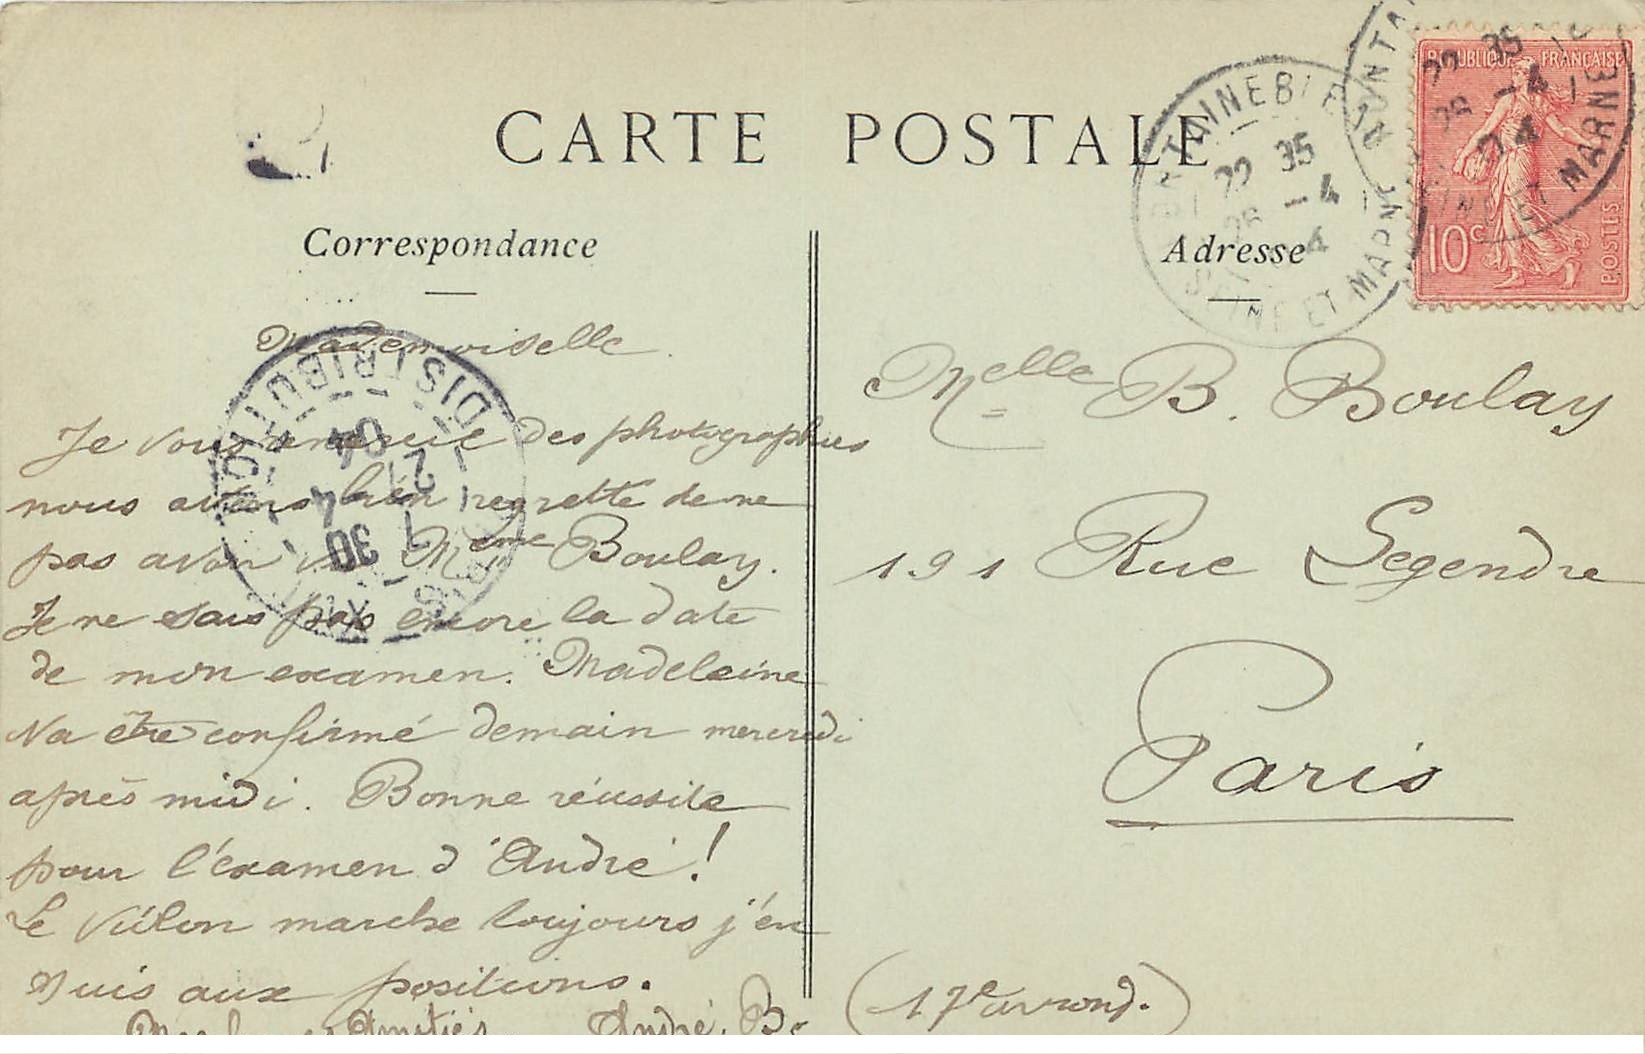 CARTE POSTALE
Correspondance
Mademoiselle
Je vous envoie des photographies
nous avons bien regretté de ne
pas avoir vu Mme Boulay.
Je ne sais pas encore la date
de mon examen. Madeleine
va être confirmé demain mercredi
après midi. Bonne réussite
pour l'examen d'André!
Le violon marche toujours j'en
suis aux positions.
Amitiés André B
Adresse
Melle B. Boulay
191 Rue Legendre
Paris
(17e arrond.)
REPUBLIQUE FRANÇAISE
10c
POSTES
FONTAINEBLEAU
22 35
26 - 4
SEINE ET MARNE
22 35
26 - 4
SEINE ET MARNE
DISTRIBUTION
7 30
27 - 4
04